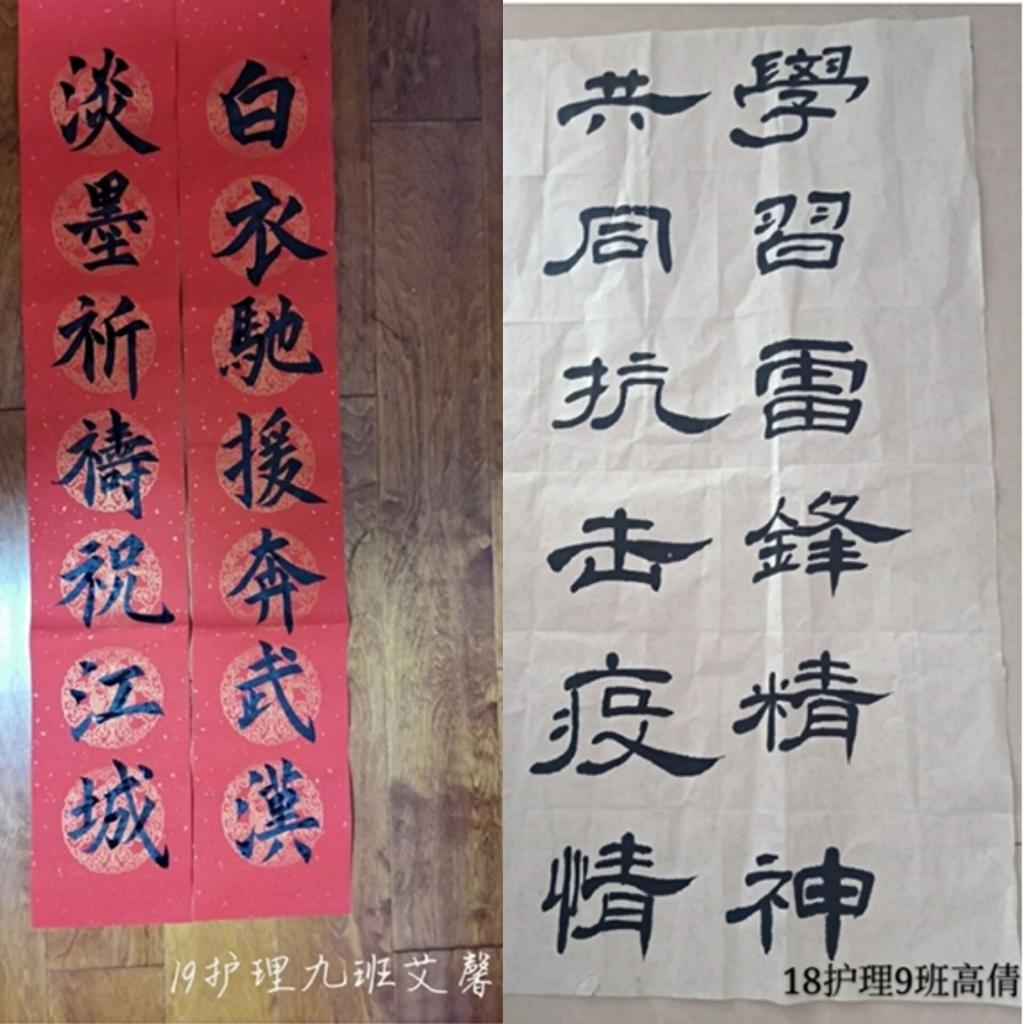 白衣馳援奔武漢
淡墨祈禱祝江城
19护理九班艾馨
學習雷鋒精神
共同抗击疫情
18护理9班高倩